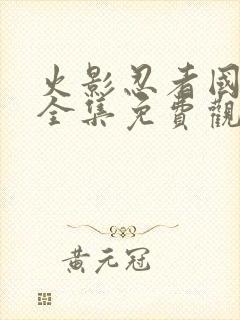 火影忍者國
全集免費觀
黃元冠